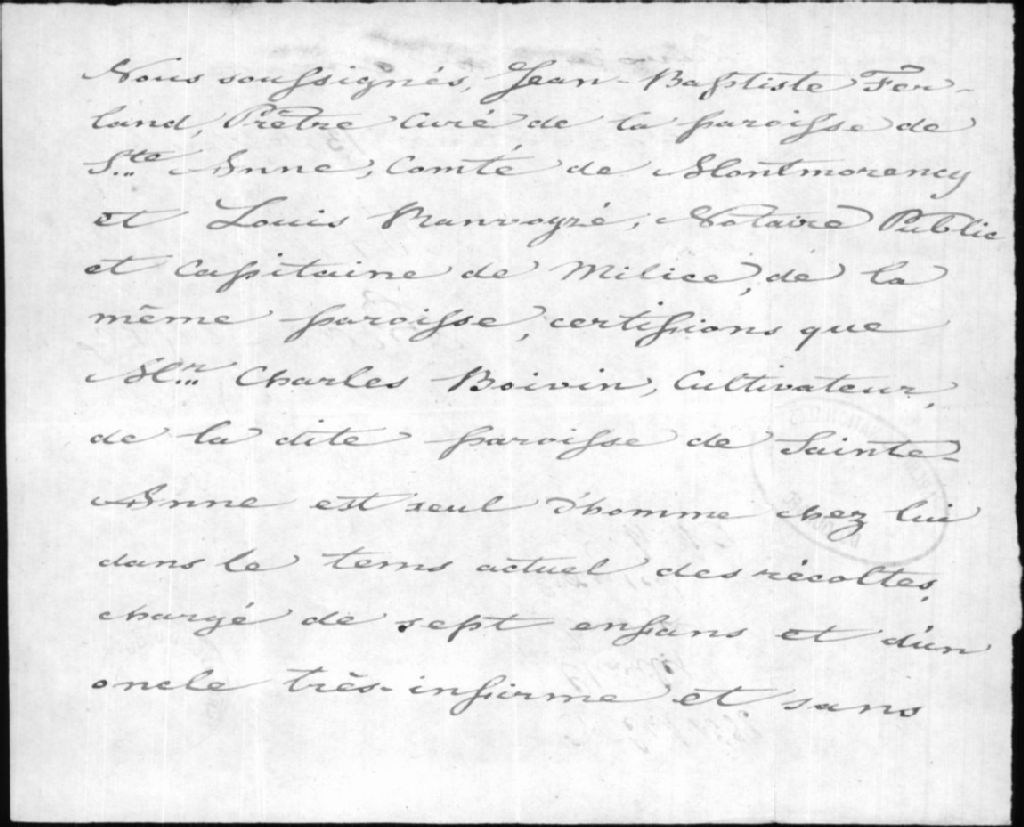 Nous soussignés, Jean-Baptiste Fer-
land, Prêtre Curé de la paroisse de
Ste Anne, Comté de Montmorency
et Louis Ranvoyzé, Notaire Public
et Capitaine de Milice, de la
même paroisse, certifions que
Mr. Charles Boivin, Cultivateur,
de la dite paroisse de Sainte-
Anne est seul d'homme chez lui
dans le tems actuel des récoltes,
chargé de sept enfans et d'un
oncle très-infirme et sans